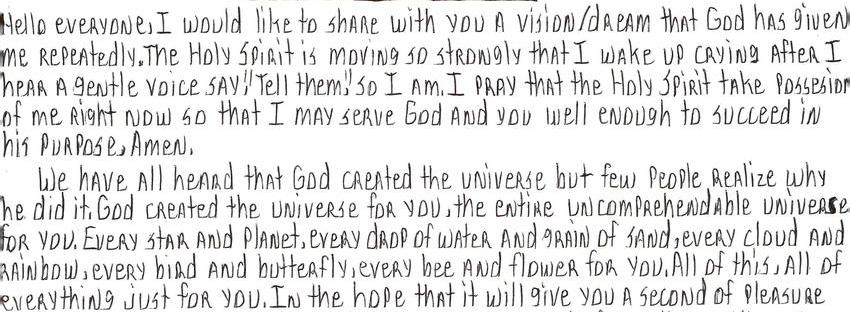 Hello everyone, I would like to share with you a vision/dream that God has given
me repeatedly. The Holy Spirit is moving so strongly that I wake up crying after I
hear a gentle voice say "Tell them" so I am. I pray that the Holy Spirit take possesion
of me right now so that I may serve God and you well enough to succeed in
his purpose, Amen.
We have all heard that God created the universe but few people realize why
he did it. God created the universe for you, the entire uncomprehendable universe
for you. Every star and planet, every drop of water and grain of sand, every cloud and
rainbow, every bird and butterfly, every bee and flower for you. All of this, all of
everything just for you. In the hope that it will give you a second of pleasure